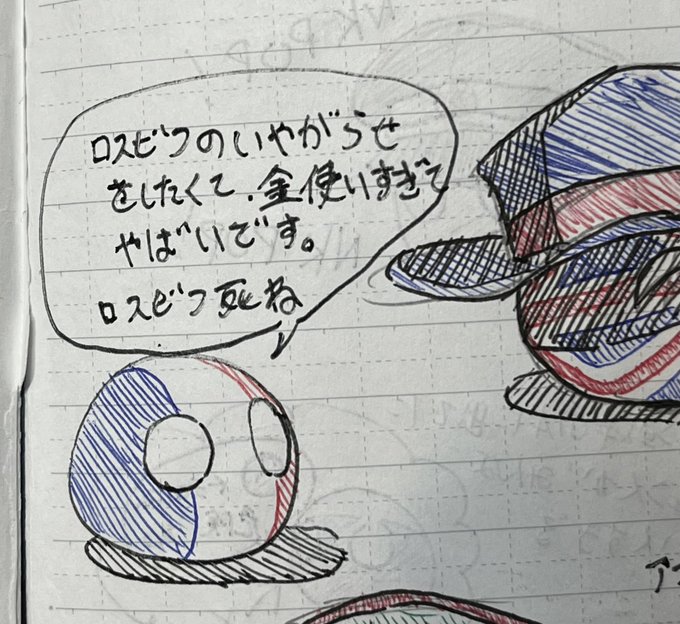 ロスビフのいやがらせ
をしたくて、金使いすぎて
やばいです。
ロスビフ死ね
NK-POP!